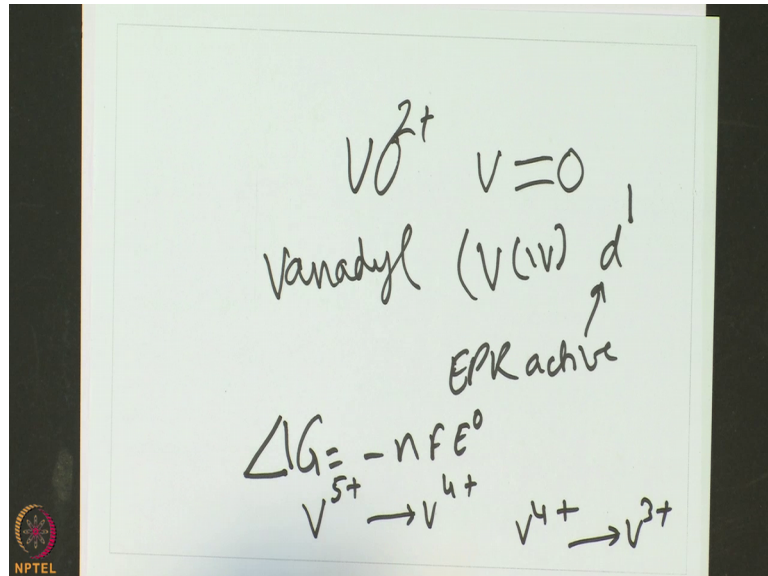 VO²⁺ V=O
Vanadyl (V(IV) d¹
EPR active
ΔG = -nFE⁰
V⁵⁺ → V⁴⁺ V⁴⁺ → V³⁺
NPTEL